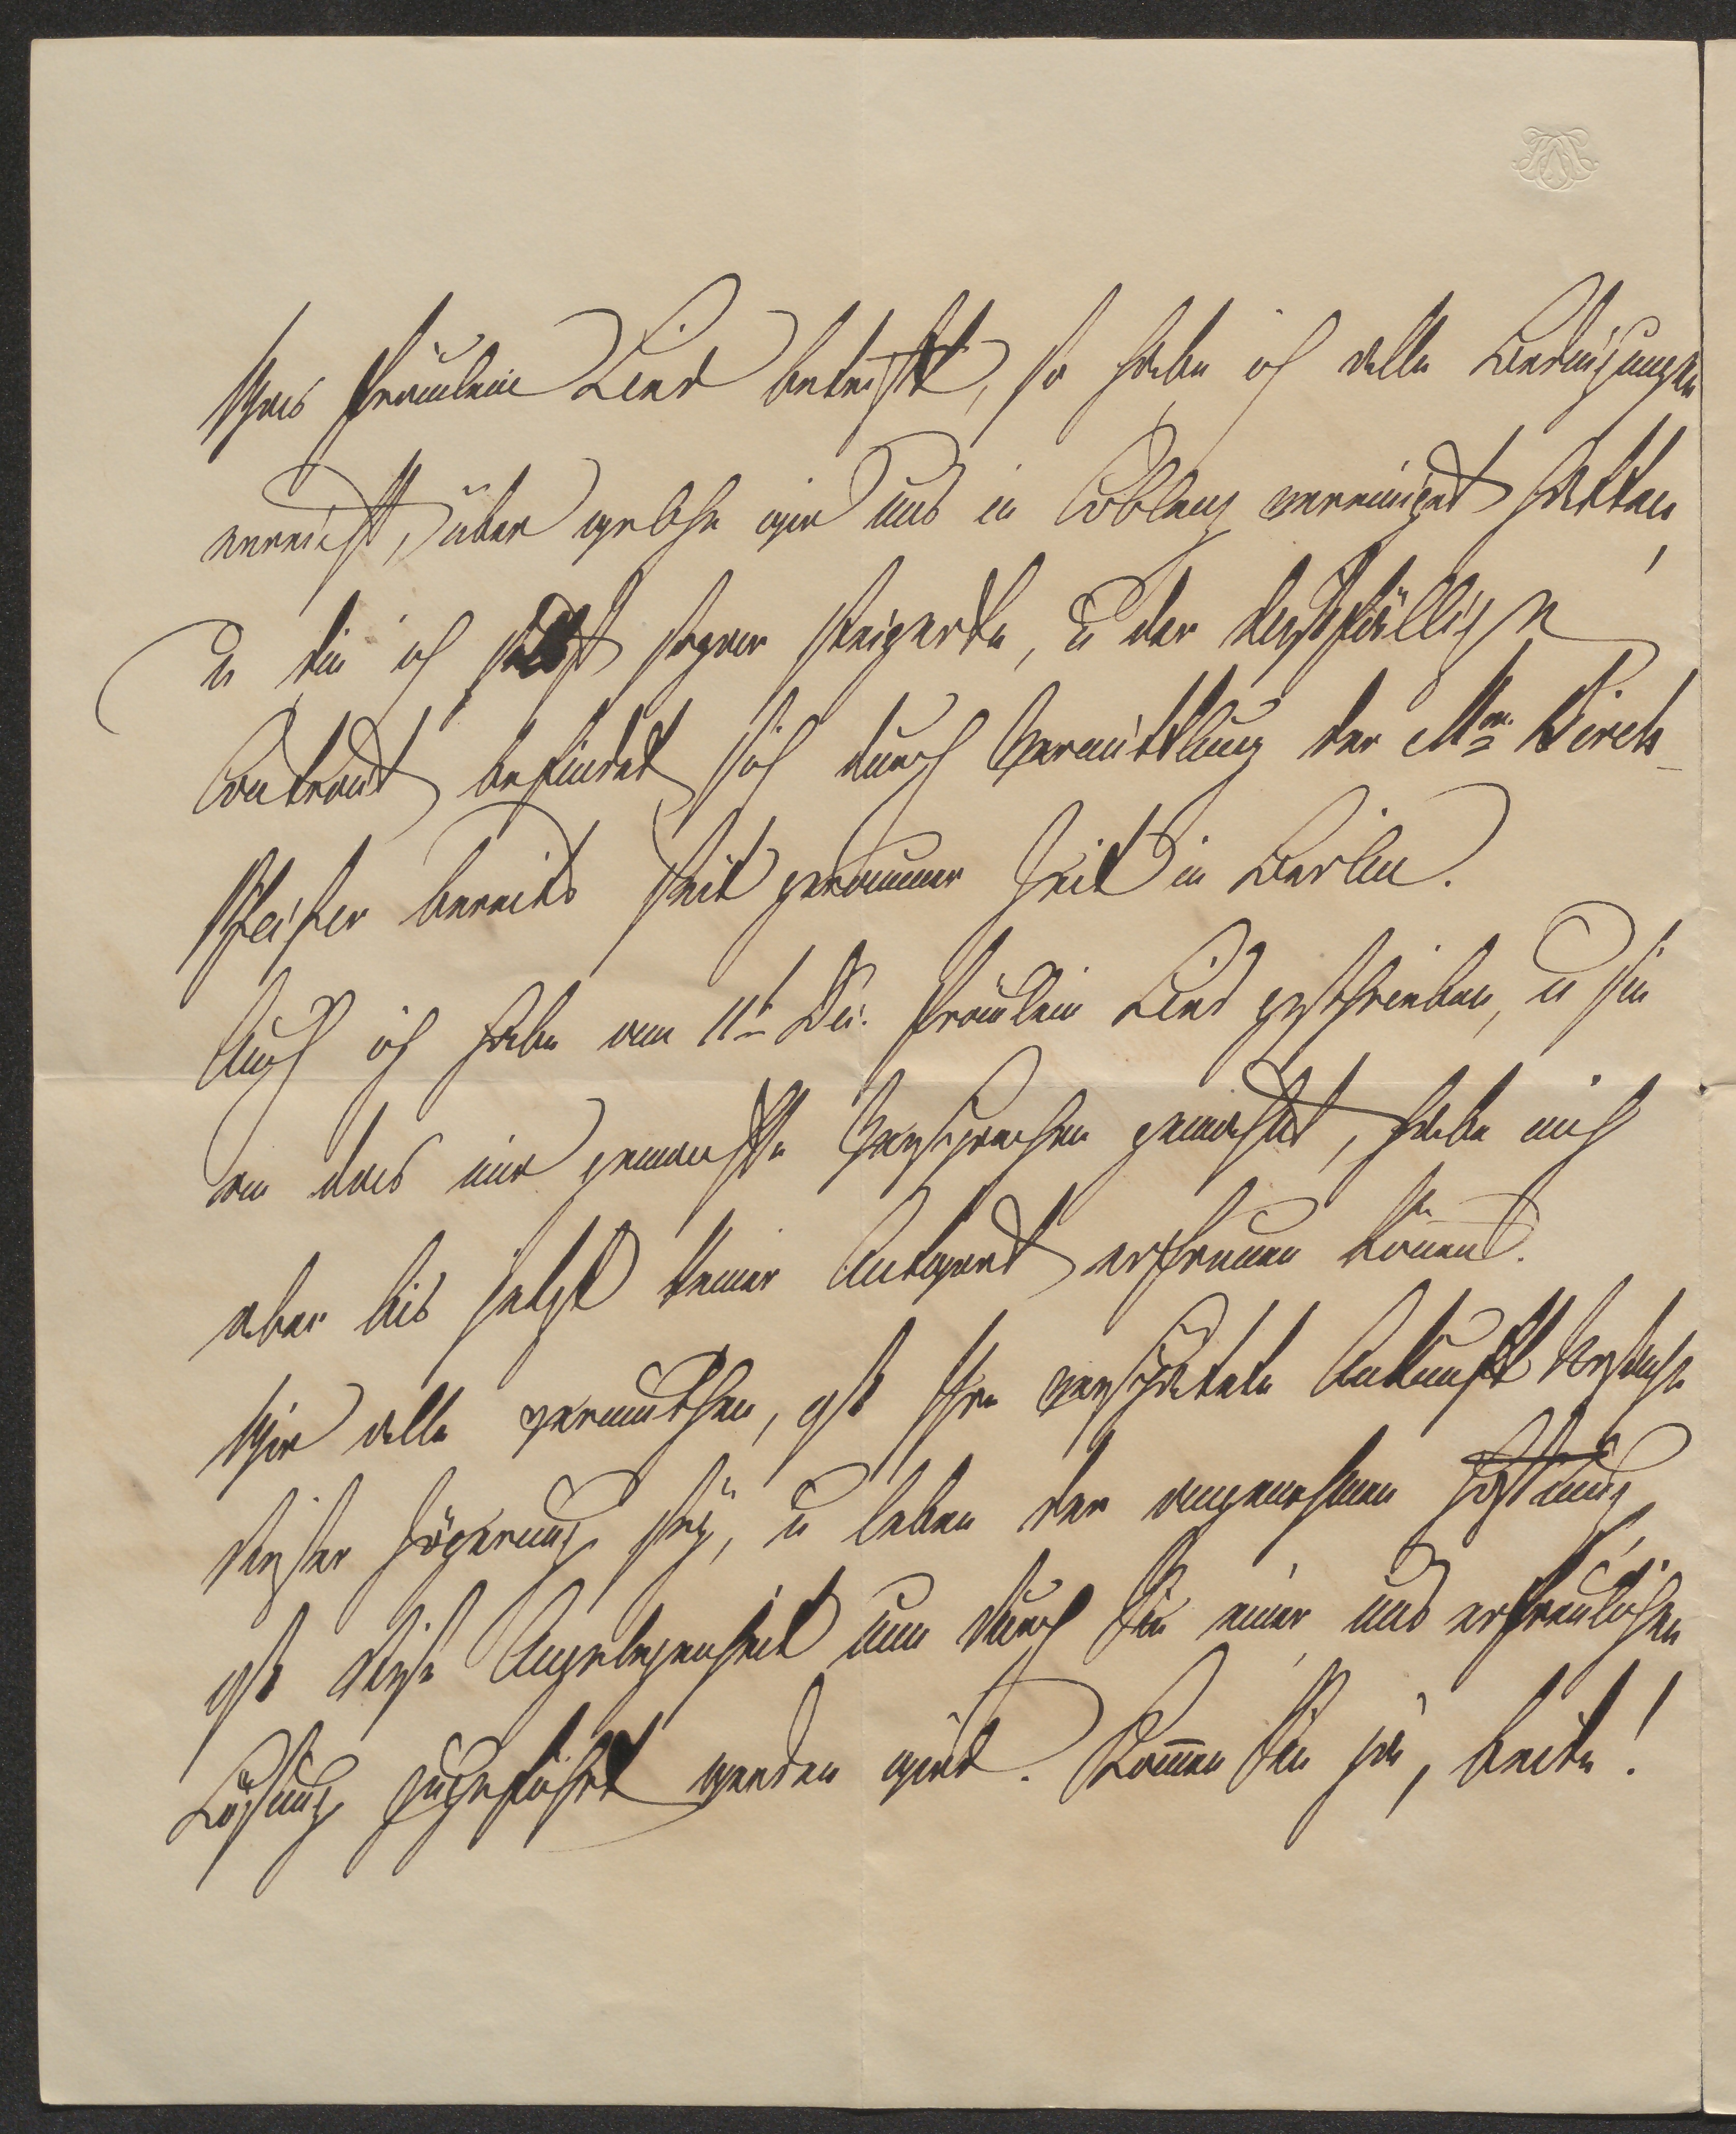 Was Fräulein Lind betrifft, so habe ich alle Bedingungen
erreicht, über welche wir uns in Coblenz vereiniget hatten,
u die ich selbst sogar steigerte, u der dießfällige
Contract befindet sich durch Vermittlung der Me Birch-
Pfeifer bereits seit geraumer Zeit in Berlin.
Auch ich habe am 11t Dec. Fräulein Lind geschrieben, u sie
an das mir gemachte Versprechen gemahnt, habe mich
aber bis jetzt keiner Antwort erfreuen können.
Wir alle vermuthen, daß Ihre verspätete Ankunft Ursache
dieser Zögerung sey, u leben der angenehmen Hoffnung
daß diese Angelegenheit nun durch Sie einer uns erfreulichen
Lösung zugeführt werden wird. Kommen Sie ja, beide!